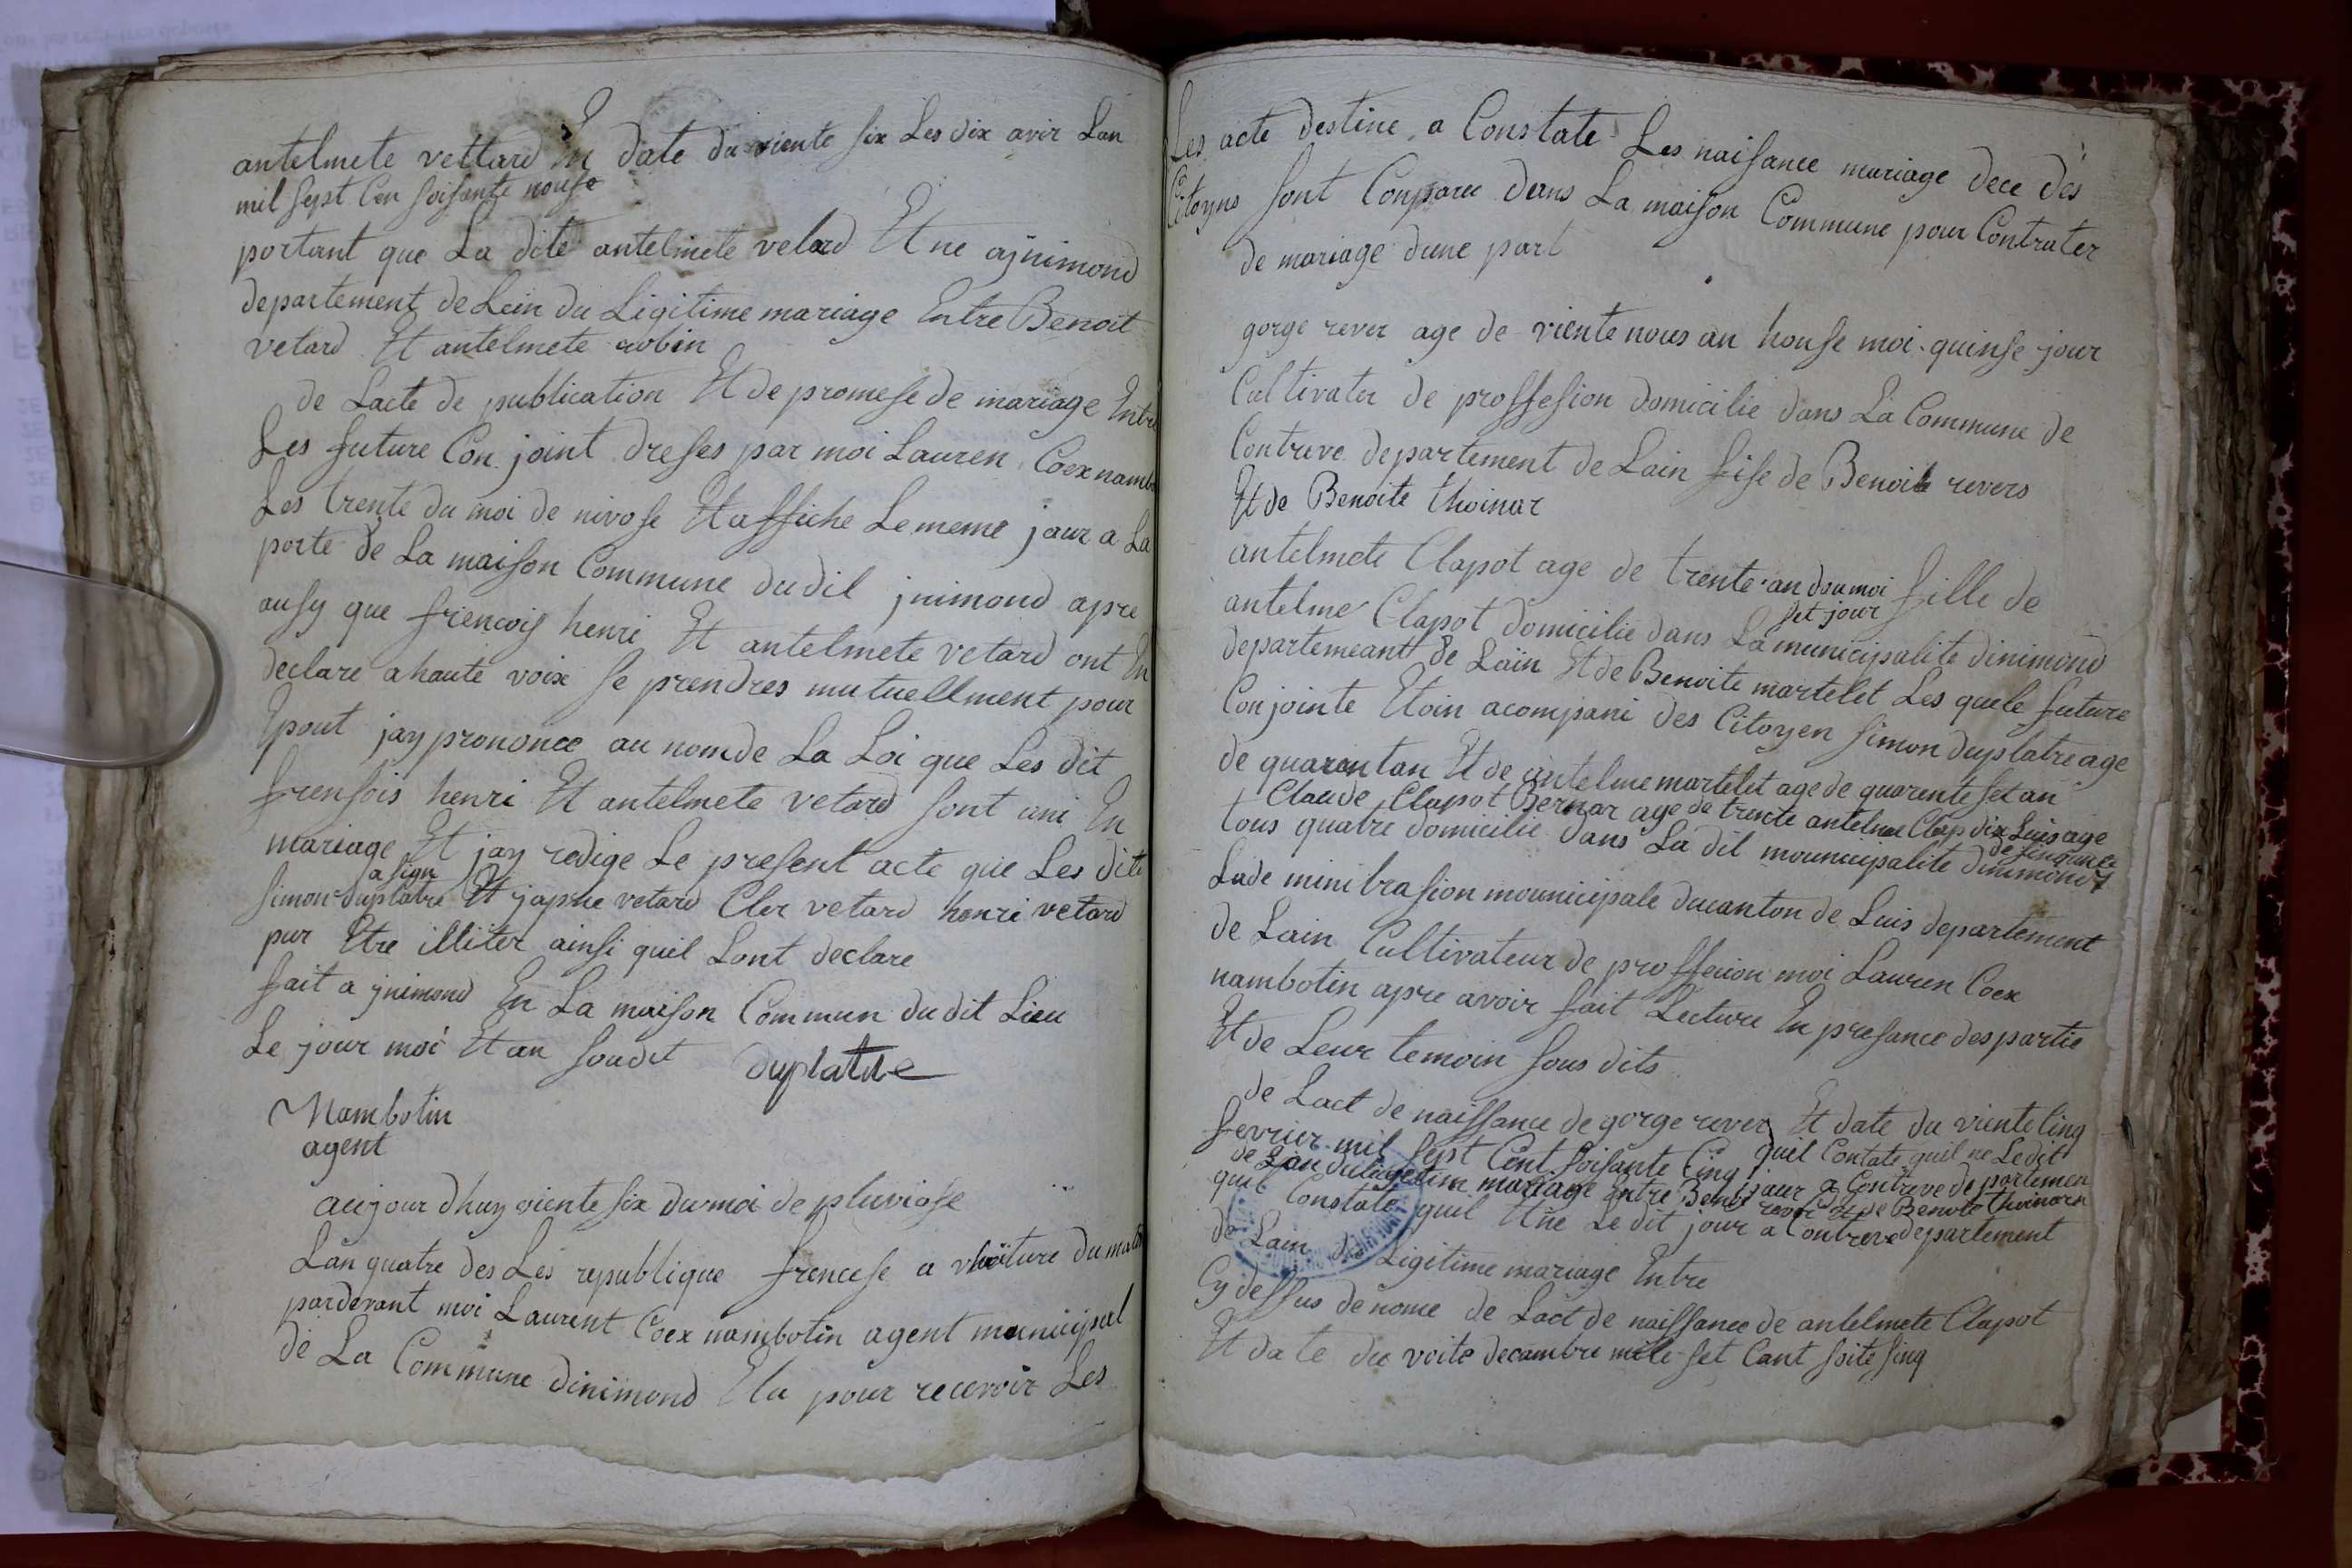 antelmete vettard En date du viente six Les dix avir Lan
mil sept Cen soisante nouse
portant que La dite antelmete velard Et ne ajnimond
departement de Lein du Ligitime mariage Entre Benoit
vetard Et antelmete robin
de Lacte de publication Et de promese de mariage Entre
Les future Con joint dreses par moi Lauren Coex namb
Les trente du moi de nivose Et affiche Le meme jour a La
porte de La maison Commune dudil jnimond apre
ausy que frencois henri Et antelmete vetard ont En
declare a haute voix se prendres mutuellment pour
Epout jay prononce au nom de La Loi que Les dit
frensois henri Et antelmete vetard sont uni En
mariage Et jay redige Le present acte que Les dite
a sign
simon duplatre Et japhe vetard Cler vetard henri vetard
pur Etre illiter ainsi quil Lont declare
fait a jnimond En La maison Commun dudit Lieu
Le jour moi Et an soudit duplatre
Nambotin
agent
aujour dhuy viente six du moi de pluviose
Lan quatre des Les republique francese a vhoiture du matin
pardevant moi Laurent Coex nambotin agent municipal
de La Commune dinimond Elu pour recevoir Les
Les acte destine a Constate Les naisance mariage dece des
Citoyns sont Conparu dans La maison Commune pour Contrater
de mariage dune part
gorge rever age de viente nous an honse moi quinse jour
Cultivater de proffesion domicilie dans La Commune de
Contreve departement de Lain fise de Benoite revers
Et de Benoite thoinar
antelmete Clapot age de trente an dou moi fille de
set jour
antelme Clapot domicilie dans La municipalite dinimond
departemeant de Lain Et de Benoite martelet Les quele future
Conjointe Etoin acompani des Citoyen simon duplatre age
de quarantan Et de antelme martelet age de quarente set an
Claude Clapot Bernar age de trente antelme Clap dix Luis age
de sinquante
tous quatre domicilie dans La dil mounicipalite dinimond
Lade minibrasion mounicipale ducanton de Luis departement
de Lain Cultivateur de proffesion moi Lauren Coex
nambotin apre avoir fait Lecture En presance des partie
Et de Leur temoin sous dits
de Lact de naissance de gorge rever Et date du viente cinq
fevrier mil sept Cent soisante Cinq quil Contate quil ne Ledit
jour a Contreve de partemen
de Lain du Liigetim mariage Entre Benoi rever Et de Benoite thoinarn
quil Constate quil Etne Le dit jour a Contreve departement
de Lain du Ligitime mariage Entre
Cy dessus denome de Lact de naissance de antelmete Clapot
Et date du voite decambre mile set Cant soite sinq